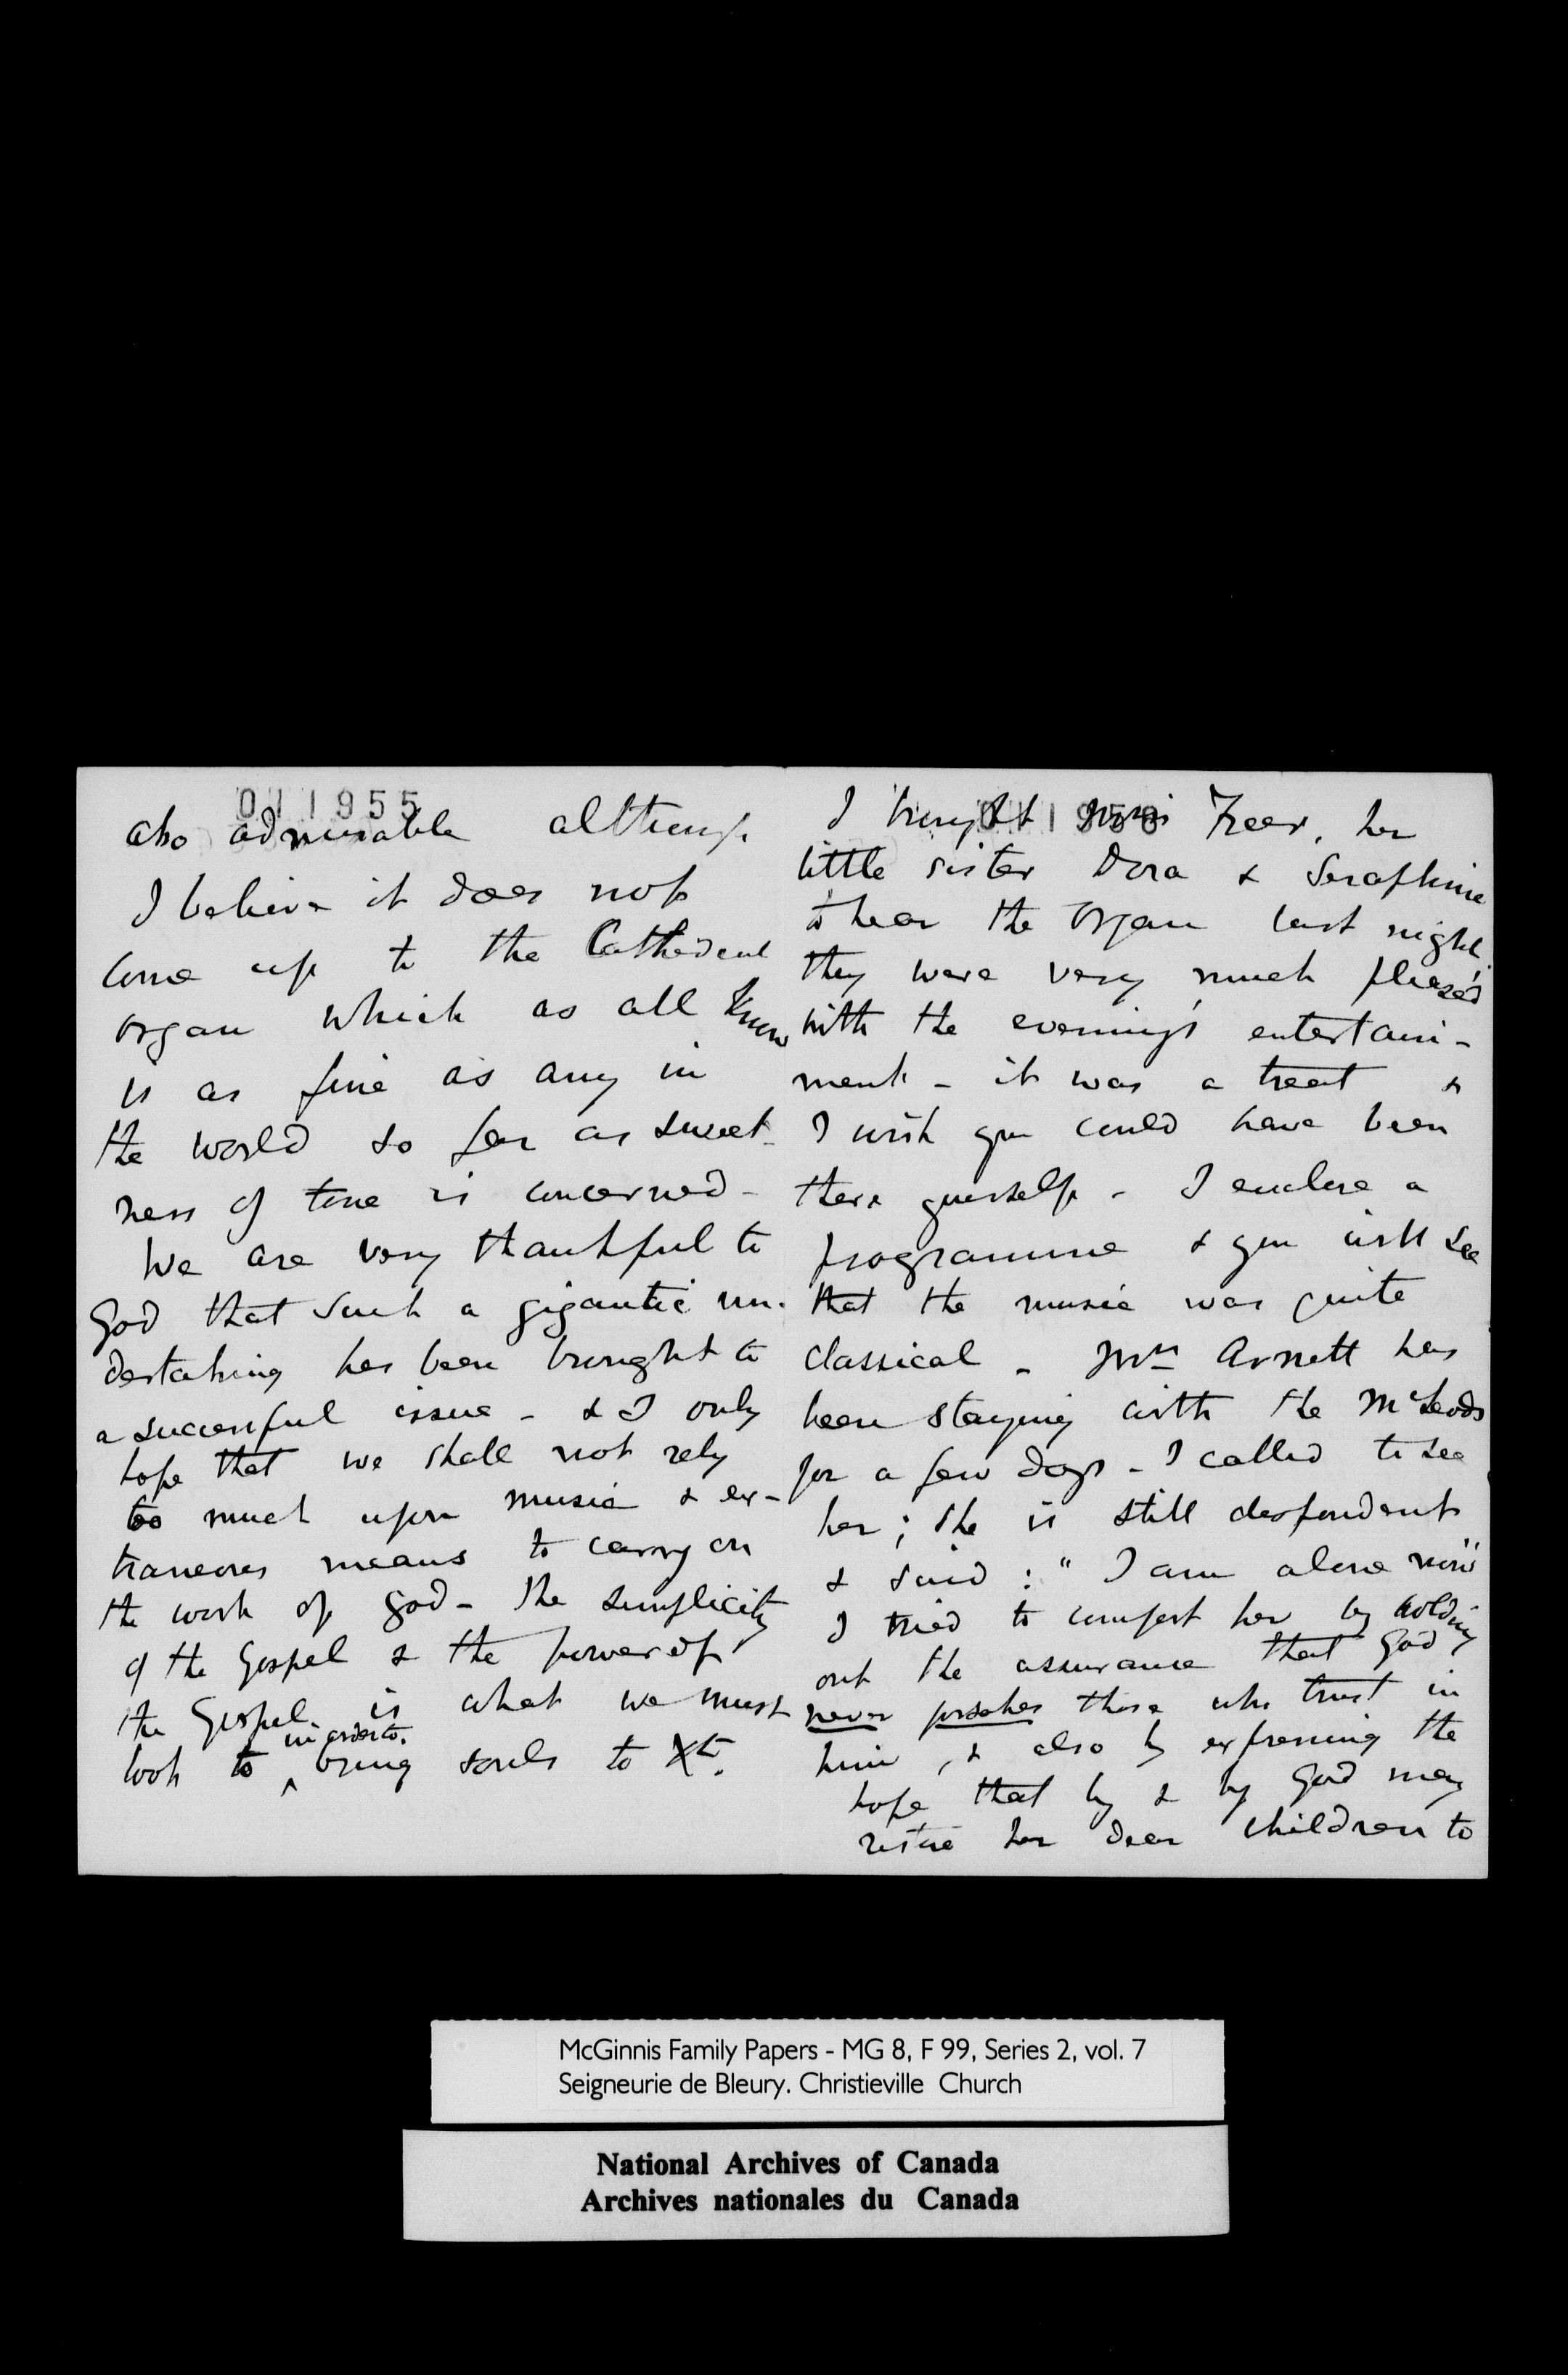 011955
also admirable although
I believe it does not
come up to the Cathedral
organ which as all know
is as fine as any in
the world so far as sweet-
ness of tone is concerned -
We are very thankful to
God that such a gigantic un-
dertaking has been brought to
a successful issue - & I only
hope that we shall not rely
too much upon music & ex-
traneous means to carry on
the work of God - The simplicity
of the Gospel & the power of
the Gospel is what we must
look to in order to bring souls to Xt.
I brought Miss Freer, her
little sister Dora & Seraphine
to hear the organ last night
they were very much pleased
with the evening's entertain-
ment - it was a treat &
I wish you could have been
there yourself - I enclose a
programme & you will see
that the music was quite
classical - Mrs Arnett has
been staying with the McLeods
for a few days - I called to see
her; she is still despondent
& said : " I am alone now"
I tried to comfort her by holding
out the assurance that God
never forsakes those who trust in
him, & also by expressing the
hope that by & by God may
restore her dear children to
McGinnis Family Papers - MG 8, F 99, Series 2, vol. 7
Seigneurie de Bleury. Christieville Church
National Archives of Canada
Archives nationales du Canada